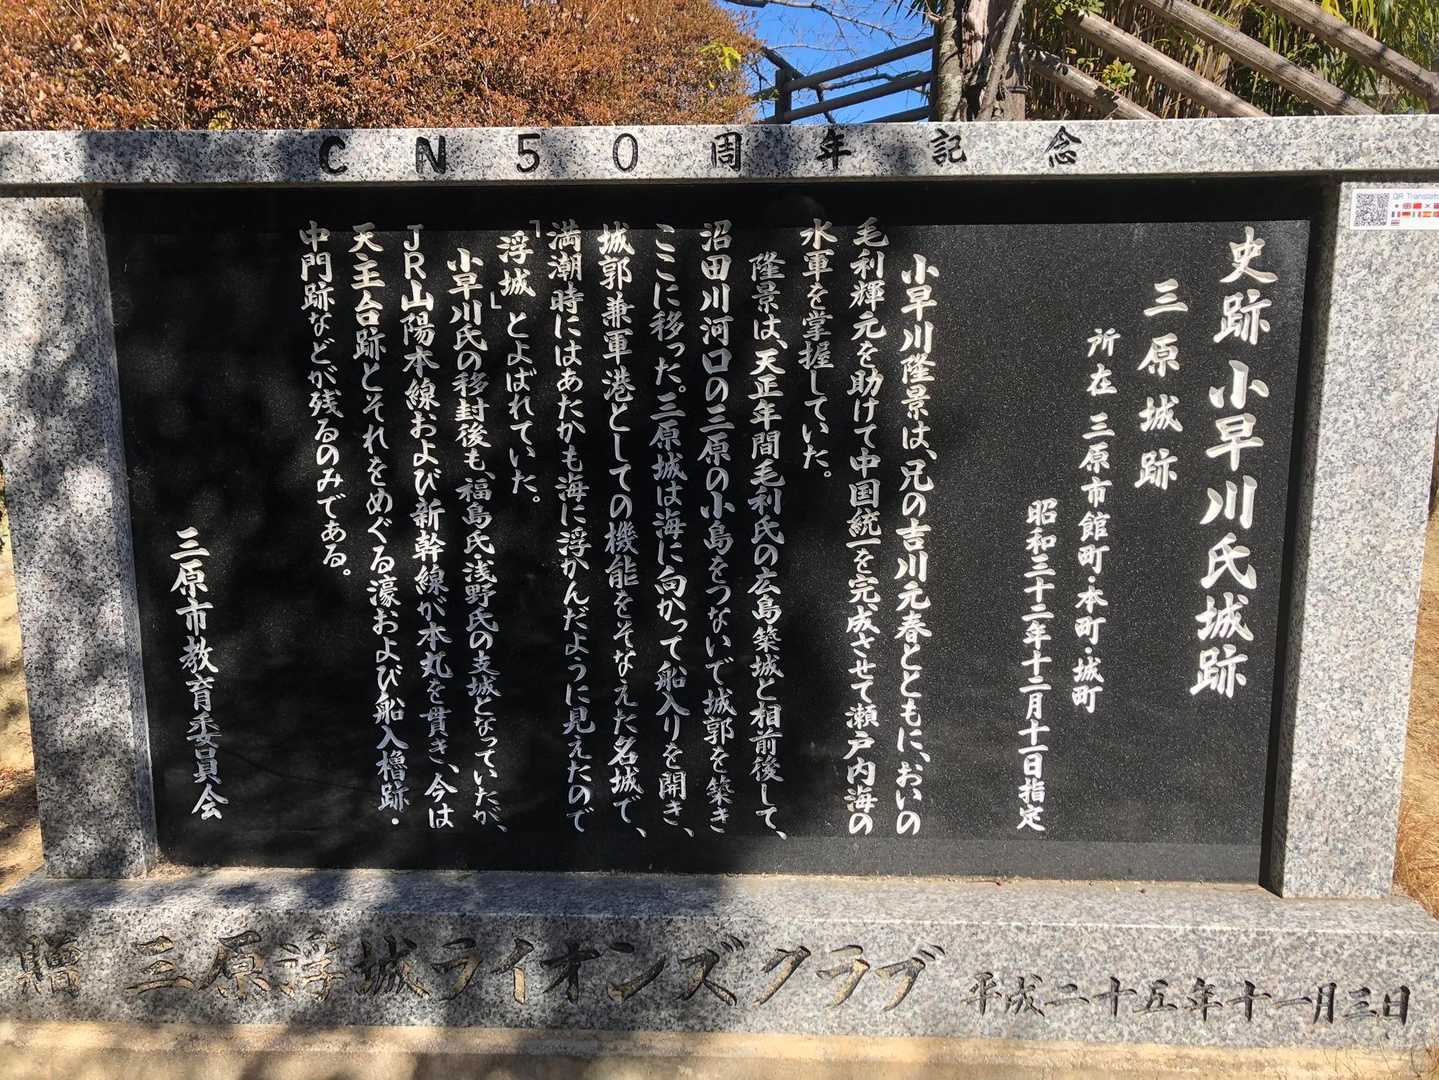 CN50周年記念
QR Translator
史跡 小早川氏城跡
三原城跡
所在 三原市館町・本町・城町
昭和三十二年十二月十一日指定
小早川隆景は、兄の吉川元春とともに、おいの
毛利輝元を助けて中国統一を完成させて瀬戸内海の
水軍を掌握していた。
隆景は、天正年間毛利氏の広島築城と相前後して、
沼田川河口の三原の小島をつないで城郭を築き
ここに移った。三原城は海に向かって船入りを開き、
城郭兼軍港としての機能をそなえた名城で、
満潮時にはあたかも海に浮かんだように見えたので
「浮城」とよばれていた。
小早川氏の移封後も、福島氏・浅野氏の支城となっていたが、
JR山陽本線および新幹線が本丸を貫き、今は
天主台跡とそれをめぐる濠および船入櫓跡・
中門跡などが残るのみである。
三原市教育委員会
贈 三原浮城ライオンズクラブ 平成二十五年十一月三日